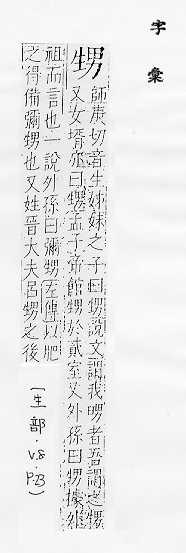 字彙
甥 師庚切音生姊妹之子曰甥說文謂我舅者吾謂之甥
又女壻亦曰甥孟子帝館甥於貳室又外孫曰甥據外
祖而言也一說外孫曰彌甥左傳以肥
之得備彌甥也又姓晉大夫呂甥之後
(生部.V.8.P.23)